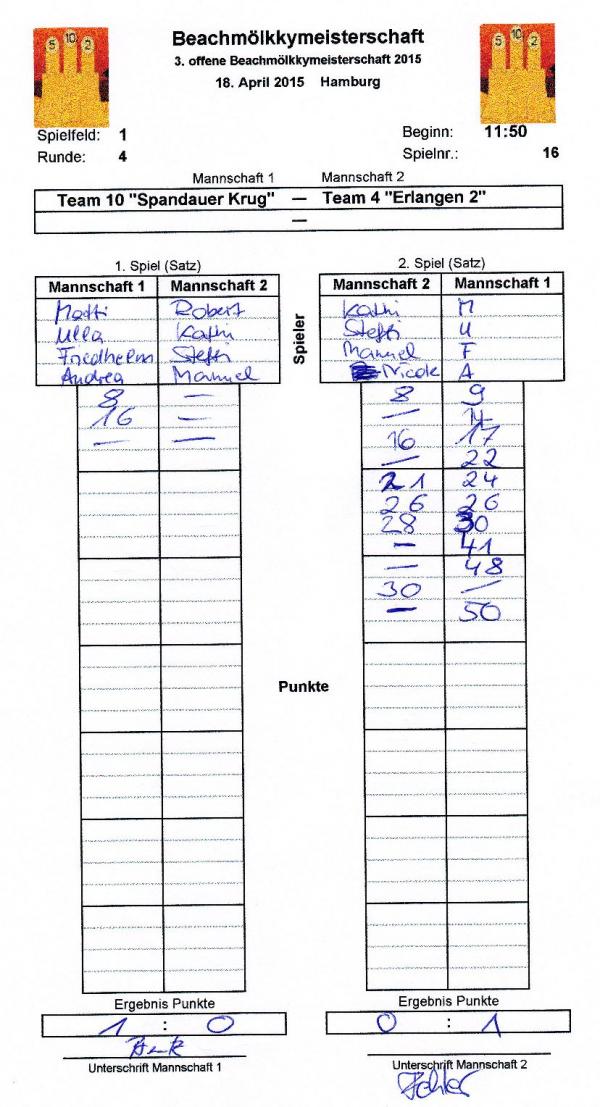 5 10 2
Beachmölkkymeisterschaft
5 10 2
3. offene Beachmölkkymeisterschaft 2015
18. April 2015 Hamburg
Spielfeld: 1 Beginn: 11:50
Runde: 4 Spielnr.: 16
Mannschaft 1 Mannschaft 2
Team 10 "Spandauer Krug" — Team 4 "Erlangen 2"
—
1. Spiel (Satz) 2. Spiel (Satz)
Mannschaft 1 Mannschaft 2 Mannschaft 2 Mannschaft 1
Spieler
Robert Kathi M
Ulla Kathi Steffi U
Friedhelm Steffi Manuel F
Andrea Manuel Nicole A
8 — 8 9
16 — — 14
— — 16 17
— 22
21 24
26 26
28 30
— 41
— 48
30 —
— 50
Punkte
Ergebnis Punkte Ergebnis Punkte
1 : 0 0 : 1
Unterschrift Mannschaft 1 Unterschrift Mannschaft 2